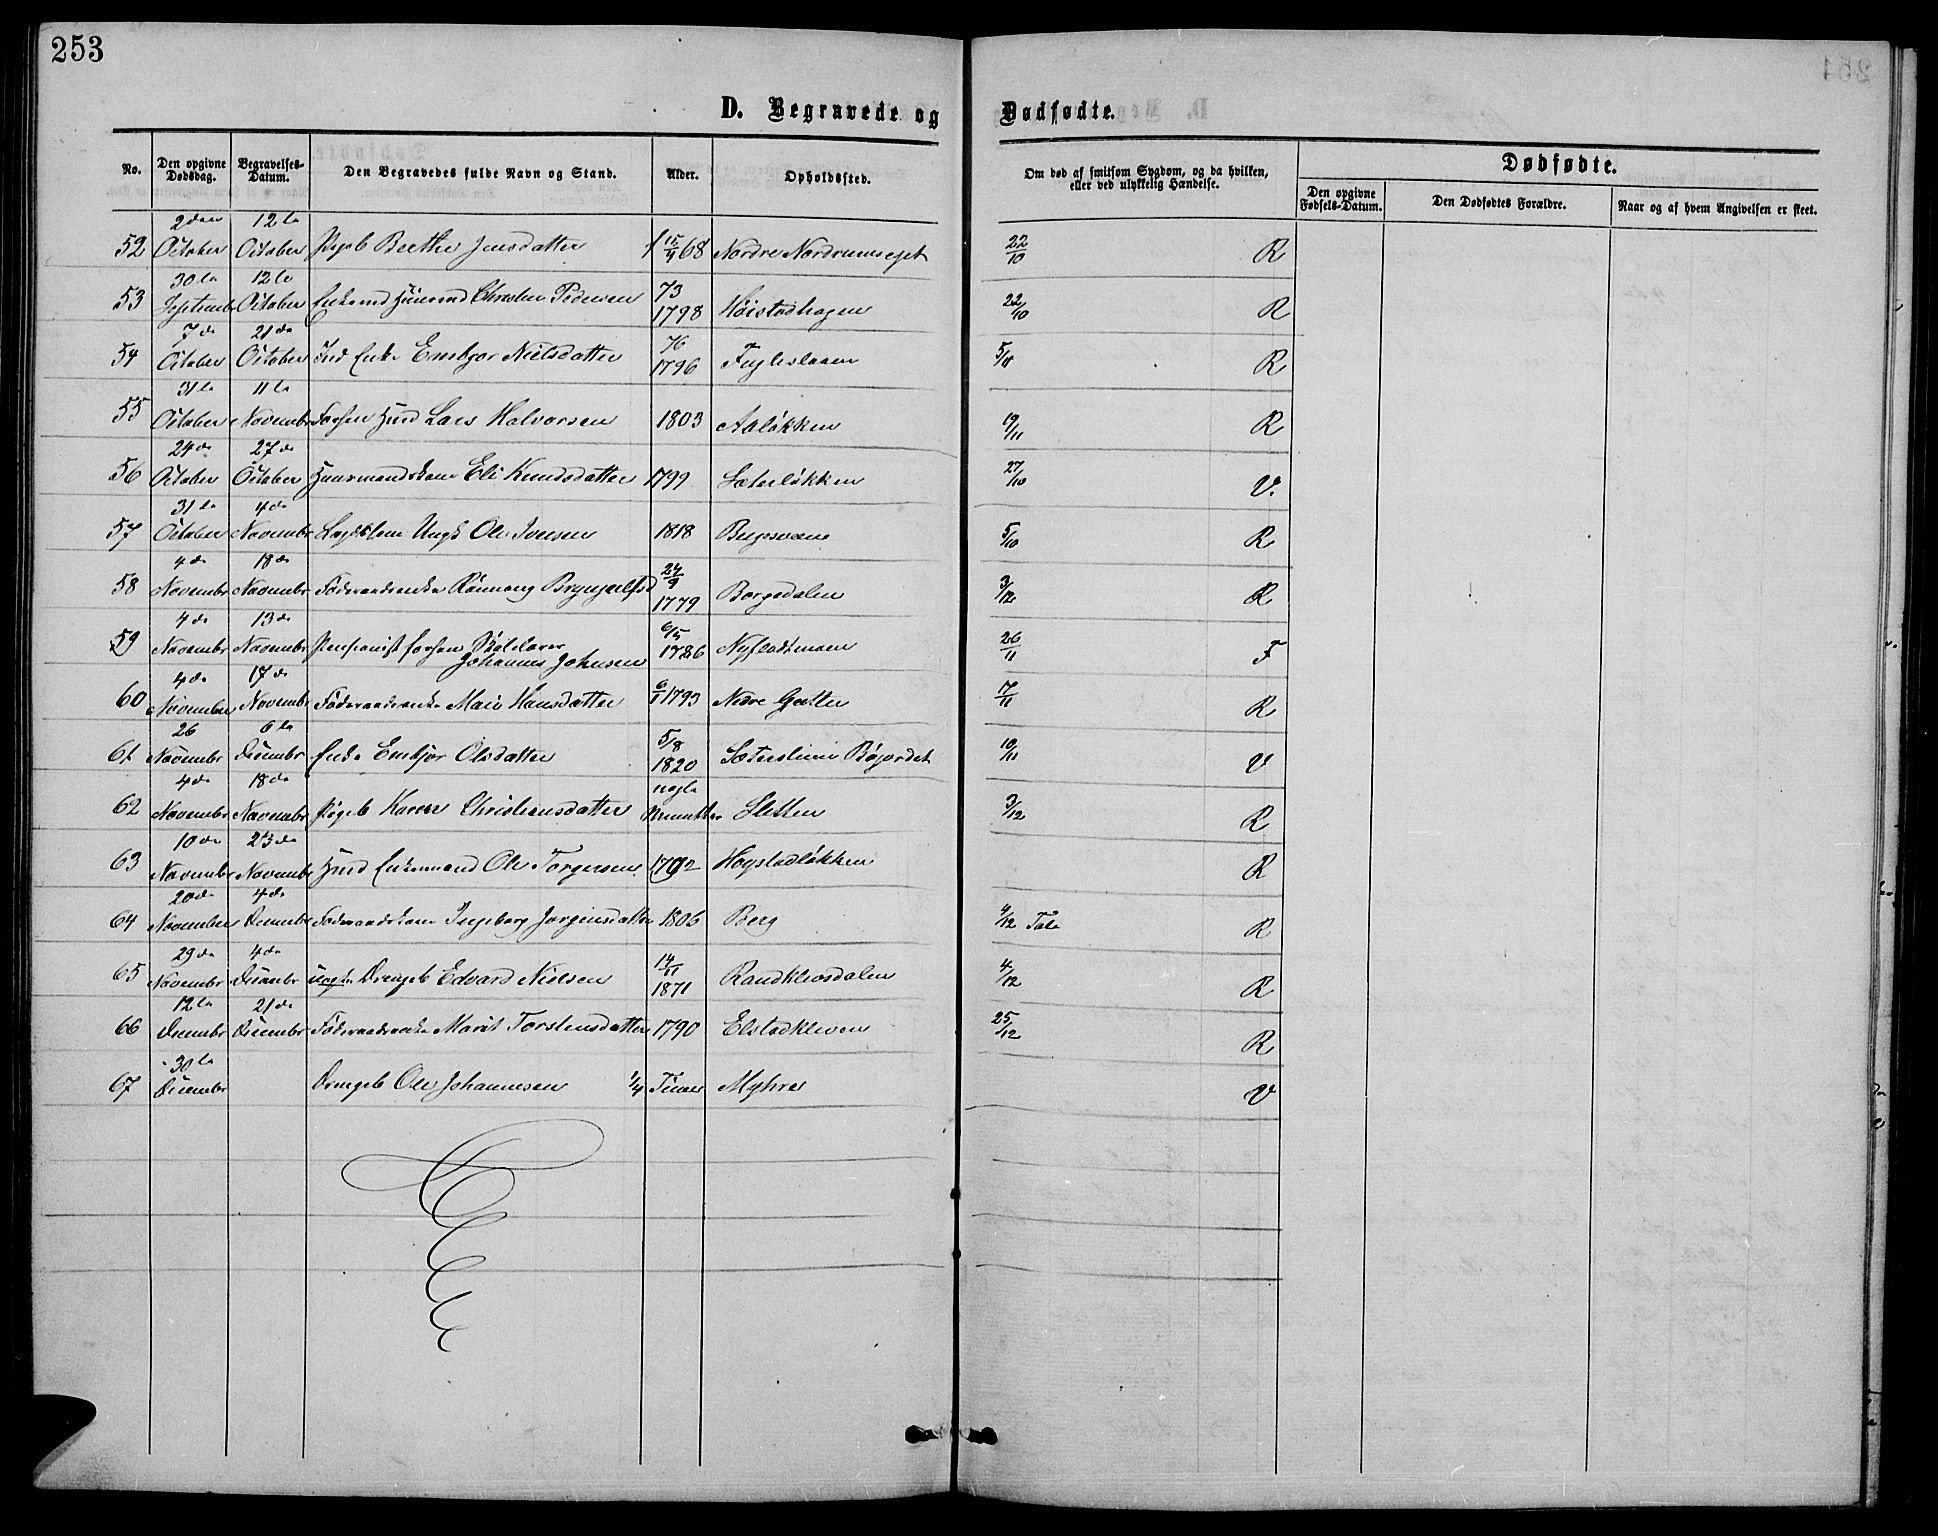 253
D. Begravede og Dødfødte.
No. Den opgivne Dødsdag. Begravelses-Datum. Den Begravedes fulde Navn og Stand. Alder. Opholdssted. Om død af smitsom Sygdom, og da hvilken, eller ved ulykkelig Hændelse. Dødfødte.
Den opgivne Fødsels-Datum. Den Dødfødtes Forældre. Naar og af hvem Angivelsen er skeet.
52 2den October 12te October Pigeb Berthe Jensdatter 15/4 68 Nordre Nordrumsejet 22/10 R
53 30te Septembr 12te October Enkemd Huusmd Christen Pedersen 73 1798 Høistadhagen 22/10 R
54 7de October 21de October Ind Enke Embjør Nielsdatter 76 1796 Fugleslaaen 5/11 R
55 31te October 11te Novembr Hmd Lars Halvorsen 1803 Aaløkken 19/11 R
56 24de October 27de October Huusmandskone Eli Knudsdatter 1799 Sæterløkken 27/10 V.
57 31te October 4de Novembr Ungk Ole Iversen 1818 5/10 R
58 4de Novembr 18de Novembr Føderaadsenke Rønnaug Brynjulfsd 24/9 1779 Borgedalen 3/12 R
59 4de Novembr 13de Novembr Pensionist forhen Skoleholder Johannes Johnsen 6/5 1786 26/11 F
60 4de November 17de Novembr Føderaadsenke Mari Hansdatter 6/1 1793 Nedre Gutter 17/11 R
61 26 Novembr 6te Decembr Enke Embjør Olsdatter 5/8 1820 Bøjordet 10/11 V
62 4de Novembr 18de Novembr Pigeb Karen Christiansdatter Sletten 3/12 R
63 10de November 23de Novembr Hmd Enkemand Ole Torgersen 1792 Hogstadløkken R
64 20de November 4de Decembr Føderaadskone Ingeborg Jørgensdatter 1806 Berg 4/12 Tale R
65 29de Novembr 4de Decembr uægte Drengeb Edvard Nielsen 14/11 1871 Randklevsdalen 4/12 R
66 12te Decembr 21de Decembr Føderaadsenke Marit Torstensdatter 1790 Elstadkleven 25/12 R
67 30te Decembr Drengeb Ole Johannesen 1/4 Time Myhre V